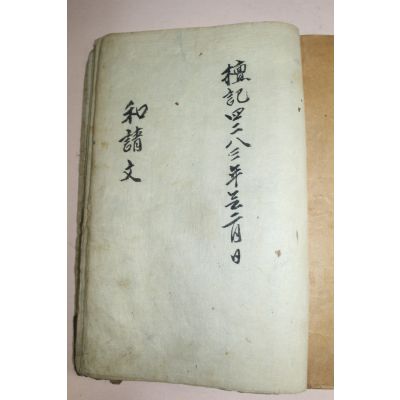 檀記四二八三年二月日
和請文